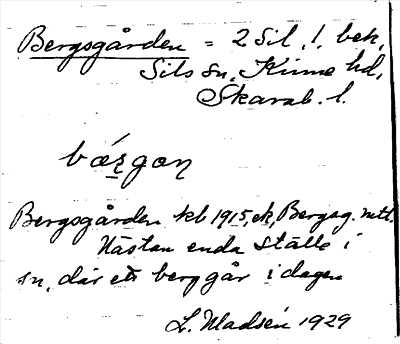 Bergsgården = 2 Sil, l. bek,
Sils sn, Kinne hd,
Skarab. l.
bærgan
Bergsgården kb 1915, ek, Bergsg. mtl.
Nästan enda ställe i
sn, där ett berg går i dagen
L. Madsén 1929